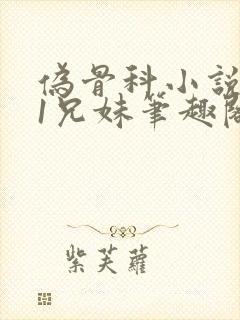 偽骨科小說
1兄妹筆趣閣
紫芙蘿